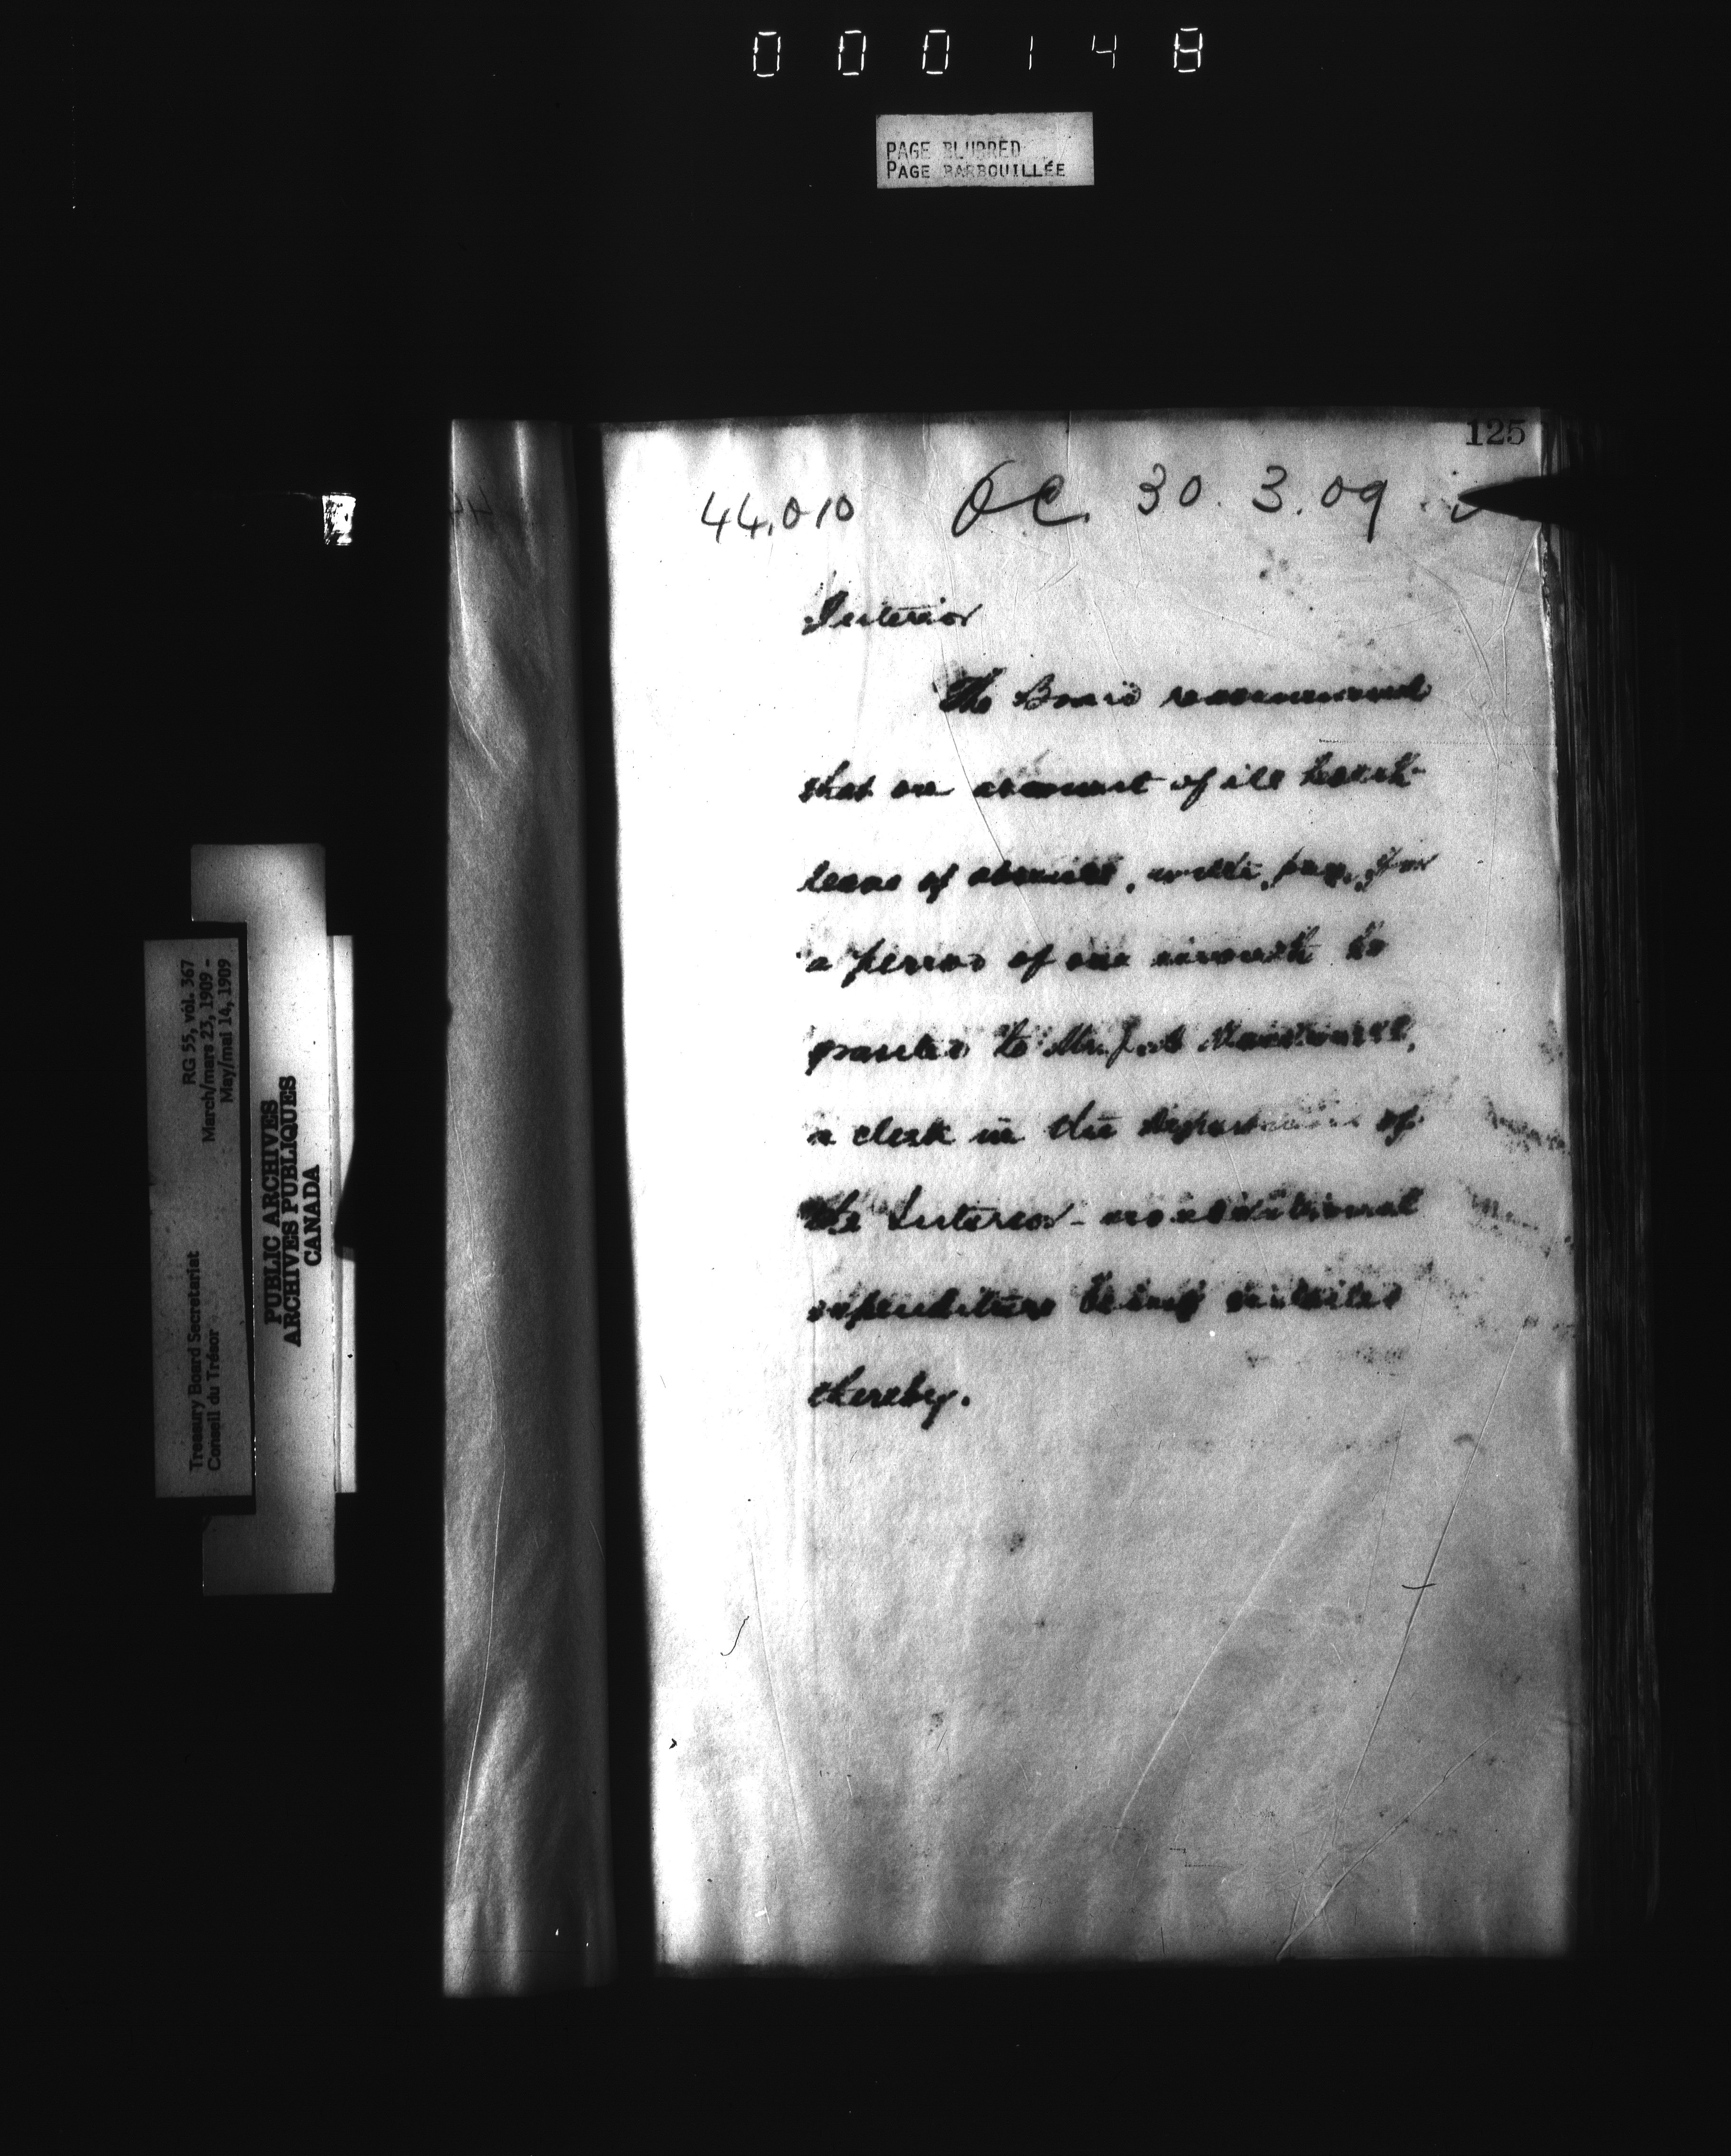 000148
PAGE BLURRED
PAGE BARBOUILLÉE
125
44,010 O.C. 30.3.09
Interior
The Board recommend
that on account of ill health
leave of absence, with pay, for
a period of one month be
granted to Mr.
a clerk in the Department of
the Interior - no additional
expenditure being entailed
thereby.
RG 55, vol. 367
March/mars 23, 1909 -
May/mai 14, 1909
Treasury Board Secretariat
Conseil du Trésor
PUBLIC ARCHIVES
ARCHIVES PUBLIQUES
CANADA